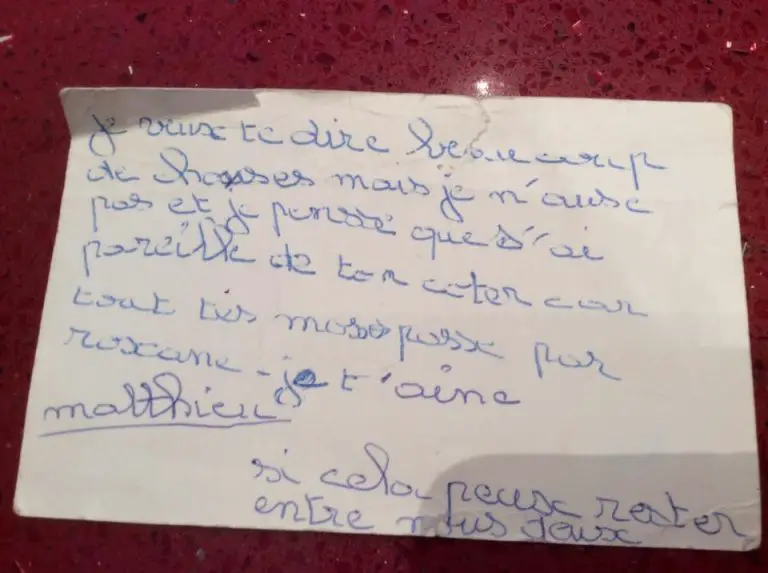 je veux te dire beaucoup
de choses mais je n'ause
pas et je pensse que s'ai
pareille de ton coter car
tout tes mots passe par
roxane - je t'aime
matthieu
si cela peux rester
entre nous deux